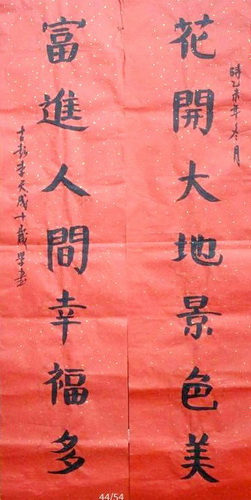 時乙未年冬月
花開大地景色美
富進人間幸福多
李天成十歲學書
44/54